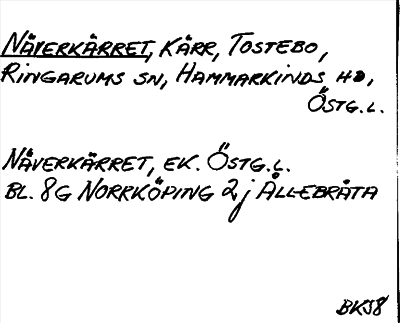 NÄVERKÄRRET, KÄRR, TOSTEBO,
RINGARUMS SN, HAMMARKINDS HD,
ÖSTG.L.
NÄVERKÄRRET, EK. ÖSTG.L.
BL. 8G NORRKÖPING 2j ÅLLEBRÅTA
BK58